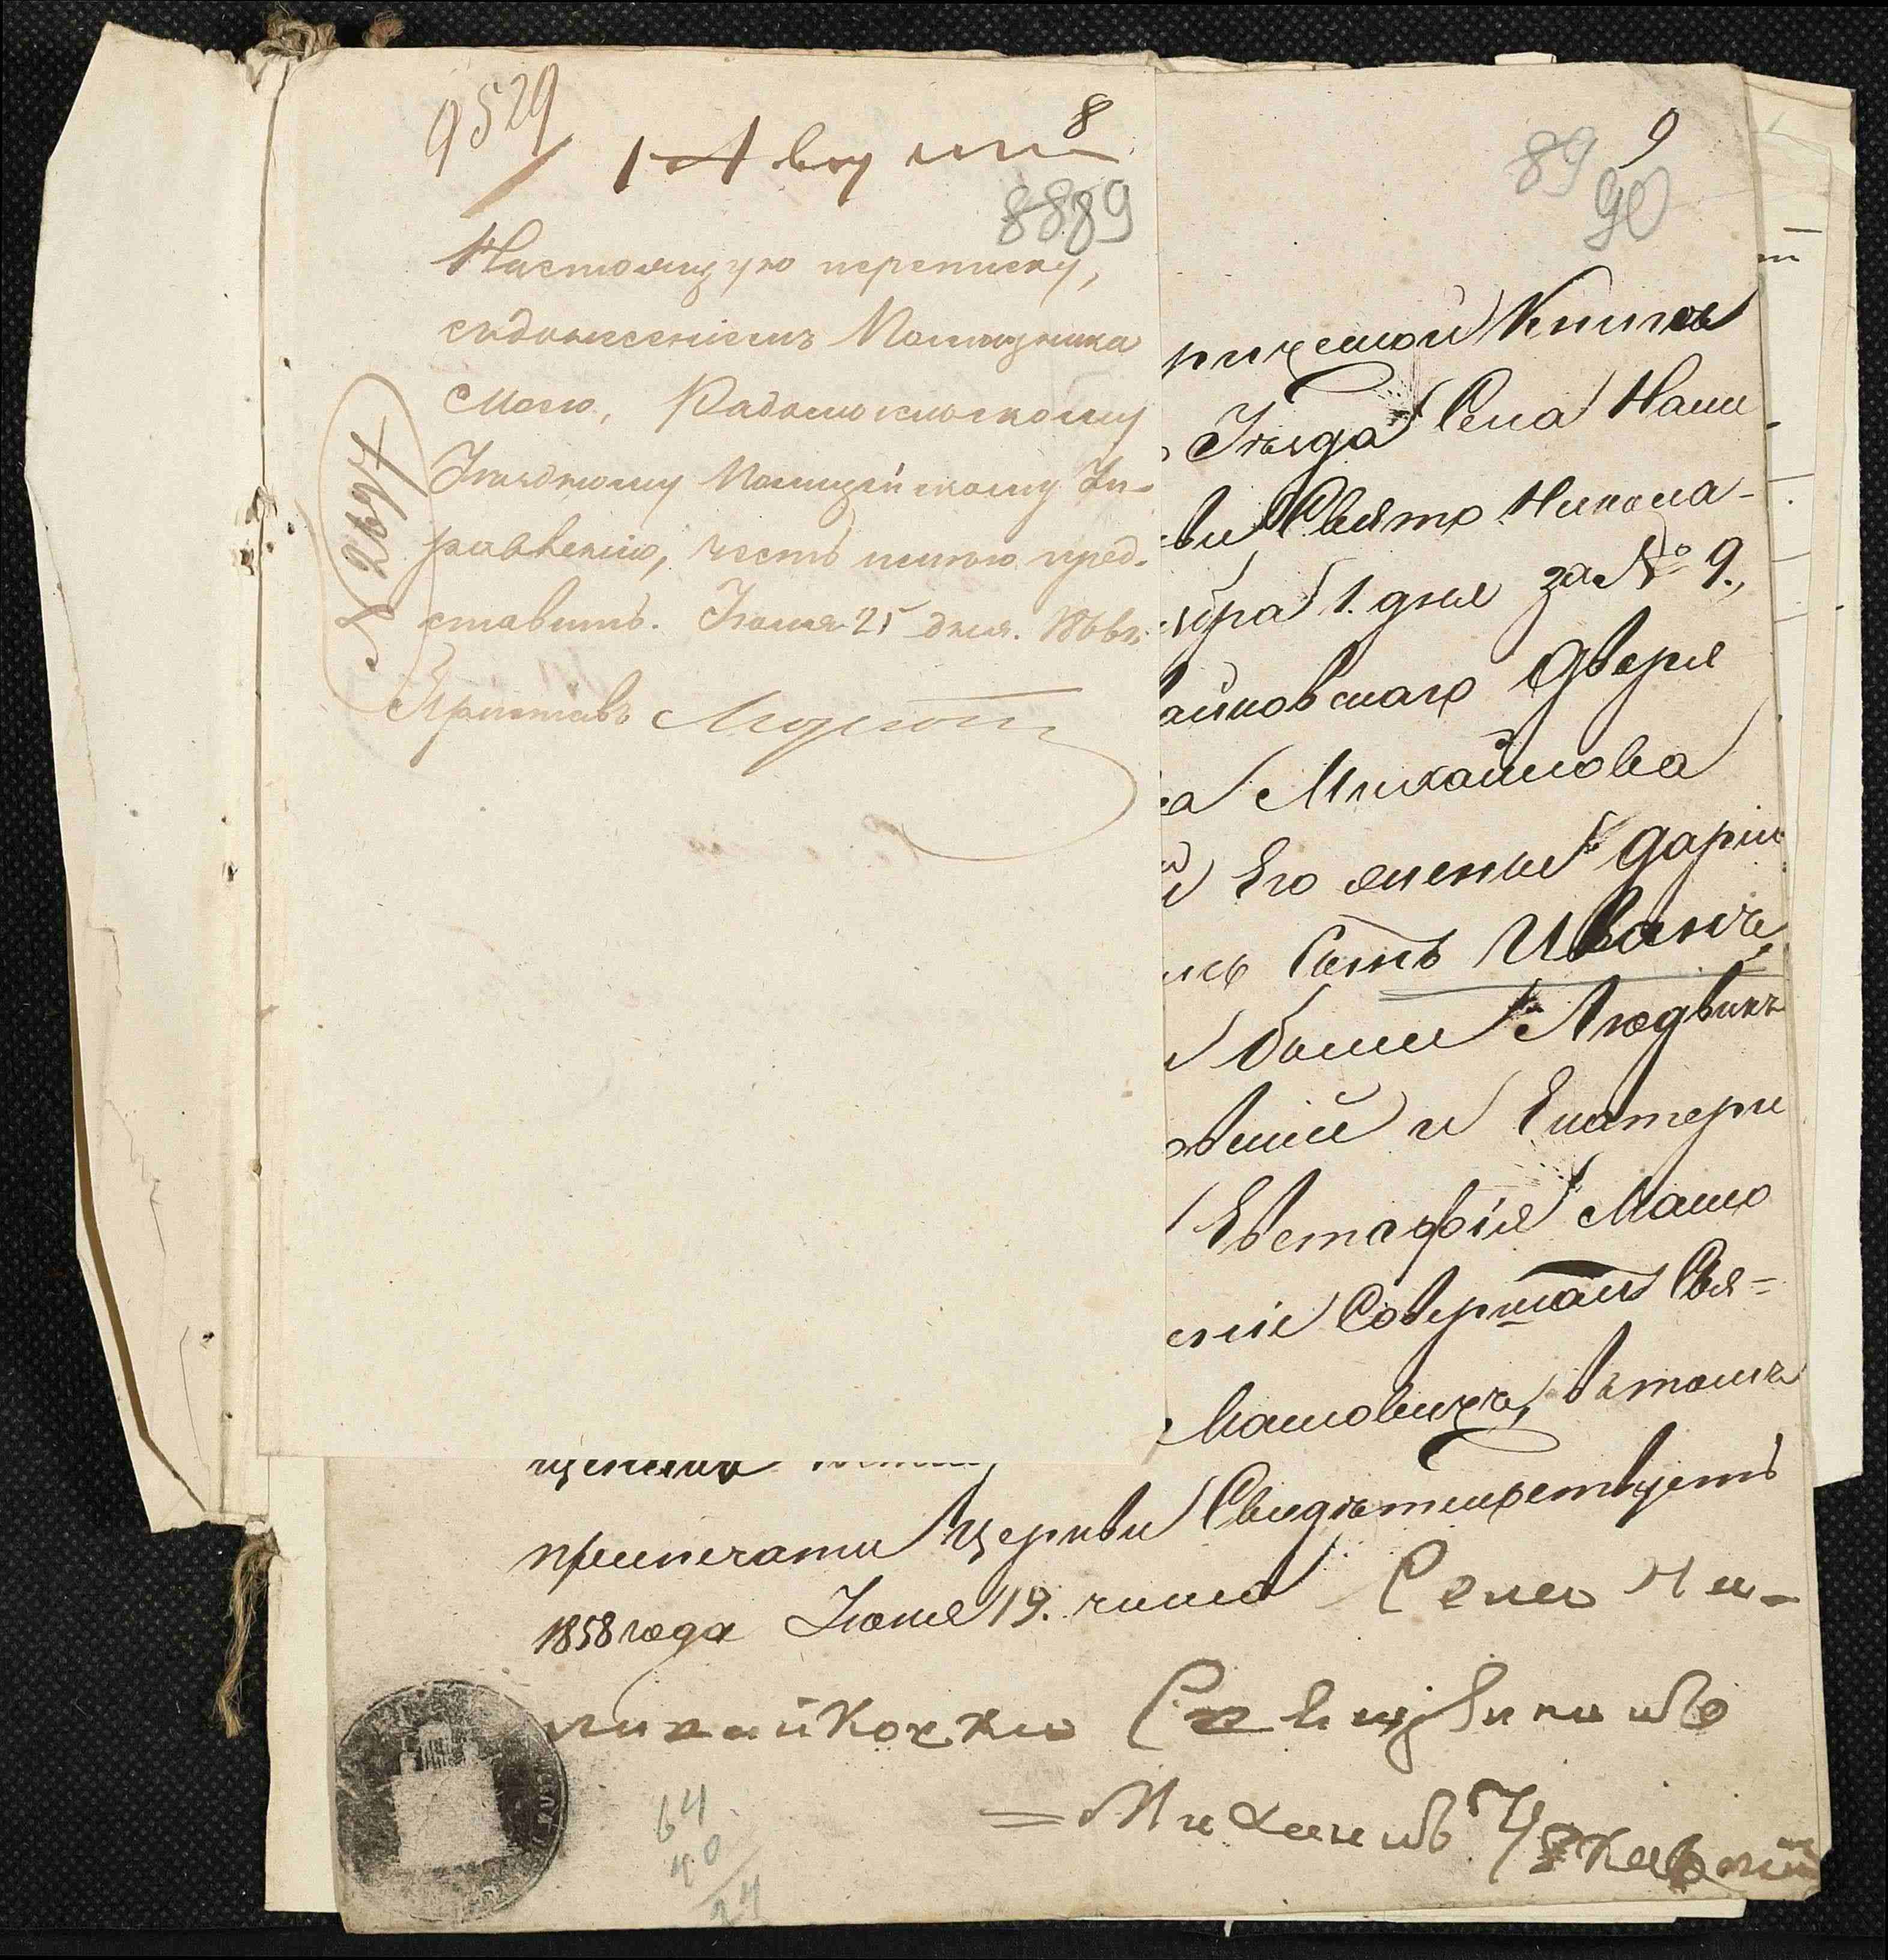 9529
1 Августа
8
8889
Настоящую переписку,
съдонесеніемъ Помощника
Моего, Радомысльскому
Уѣздному Полицейскому Уп-
равленію, честь имѣю пред-
ставить. Іюля 25 дня. 186
№ 2697
Приставъ
9
89 90
рической Книги
Уѣзда Села Нали
ви Свято Никола-
бра 1. дня за № 9.,
айковскаго Дворя
а Михайлова
й Его жены Даріи
ись Сынъ Иванъ,
и были Людвикъ
вскій и Екатери
Евстафія Мало
еніе Совершалъ Свя-
Маловичъ, вътомъ
припечати Церкви Свидѣтельствуетъ
1858 года Іюня 19. числа Села На-
ливайковки Священникъ
= Михаилъ
64
40
24